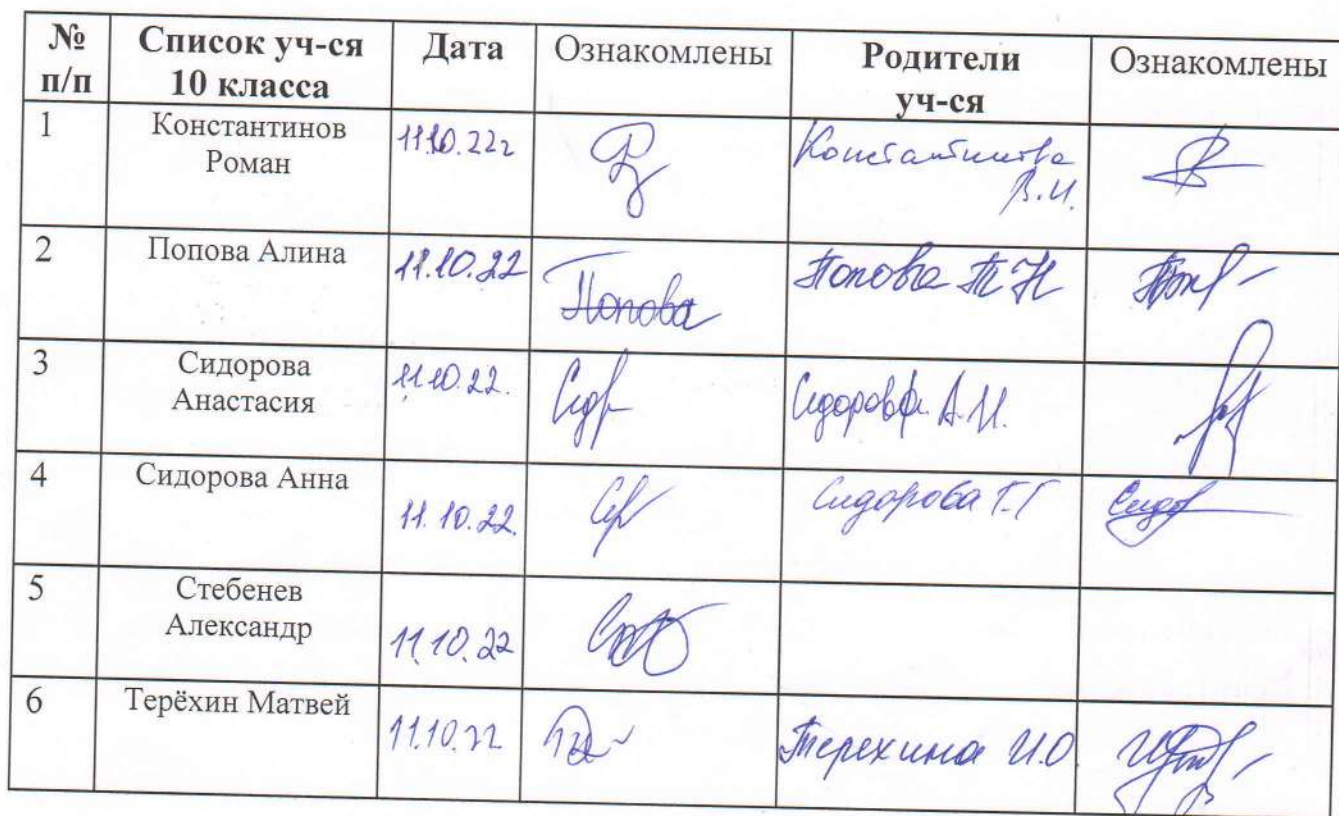 № п/п Список уч-ся 10 класса Дата Ознакомлены Родители уч-ся Ознакомлены
1 Константинов Роман 11.10.22г Константинова В.И.
2 Попова Алина 11.10.22 Попова Попова Т Н
3 Сидорова Анастасия 11.10.22. Сид Сидорова А.И.
4 Сидорова Анна 11.10.22. Сидорова Т.Г Сидор
5 Стебенев Александр 11.10.22
6 Терёхин Матвей 11.10.22 Терехина И.О